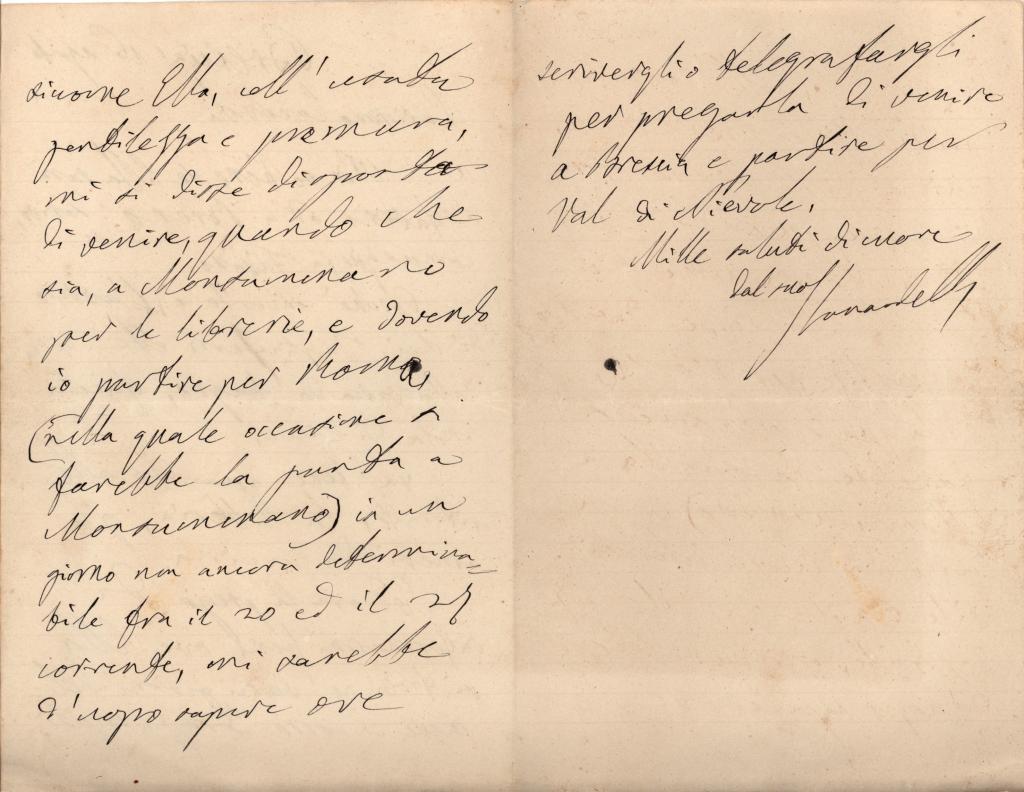 siccome Ella, coll' usata
gentilezza e premura,
mi si disse disposta
di venire, quando che
sia, a Monsummano
per le librerie, e dovendo
io partire per Roma,
(nella quale occasione si
farebbe la punta a
Monsummano) in un
giorno non ancora determina=
bile fra il 20 ed il 25
corrente, mi sarebbe
d'uopo sapere ove
scrivergli o telegrafargli
per pregarla di venire
a Brescia e partire per
Val di Nievole.
Mille saluti di cuore
dal suo
Zanardelli